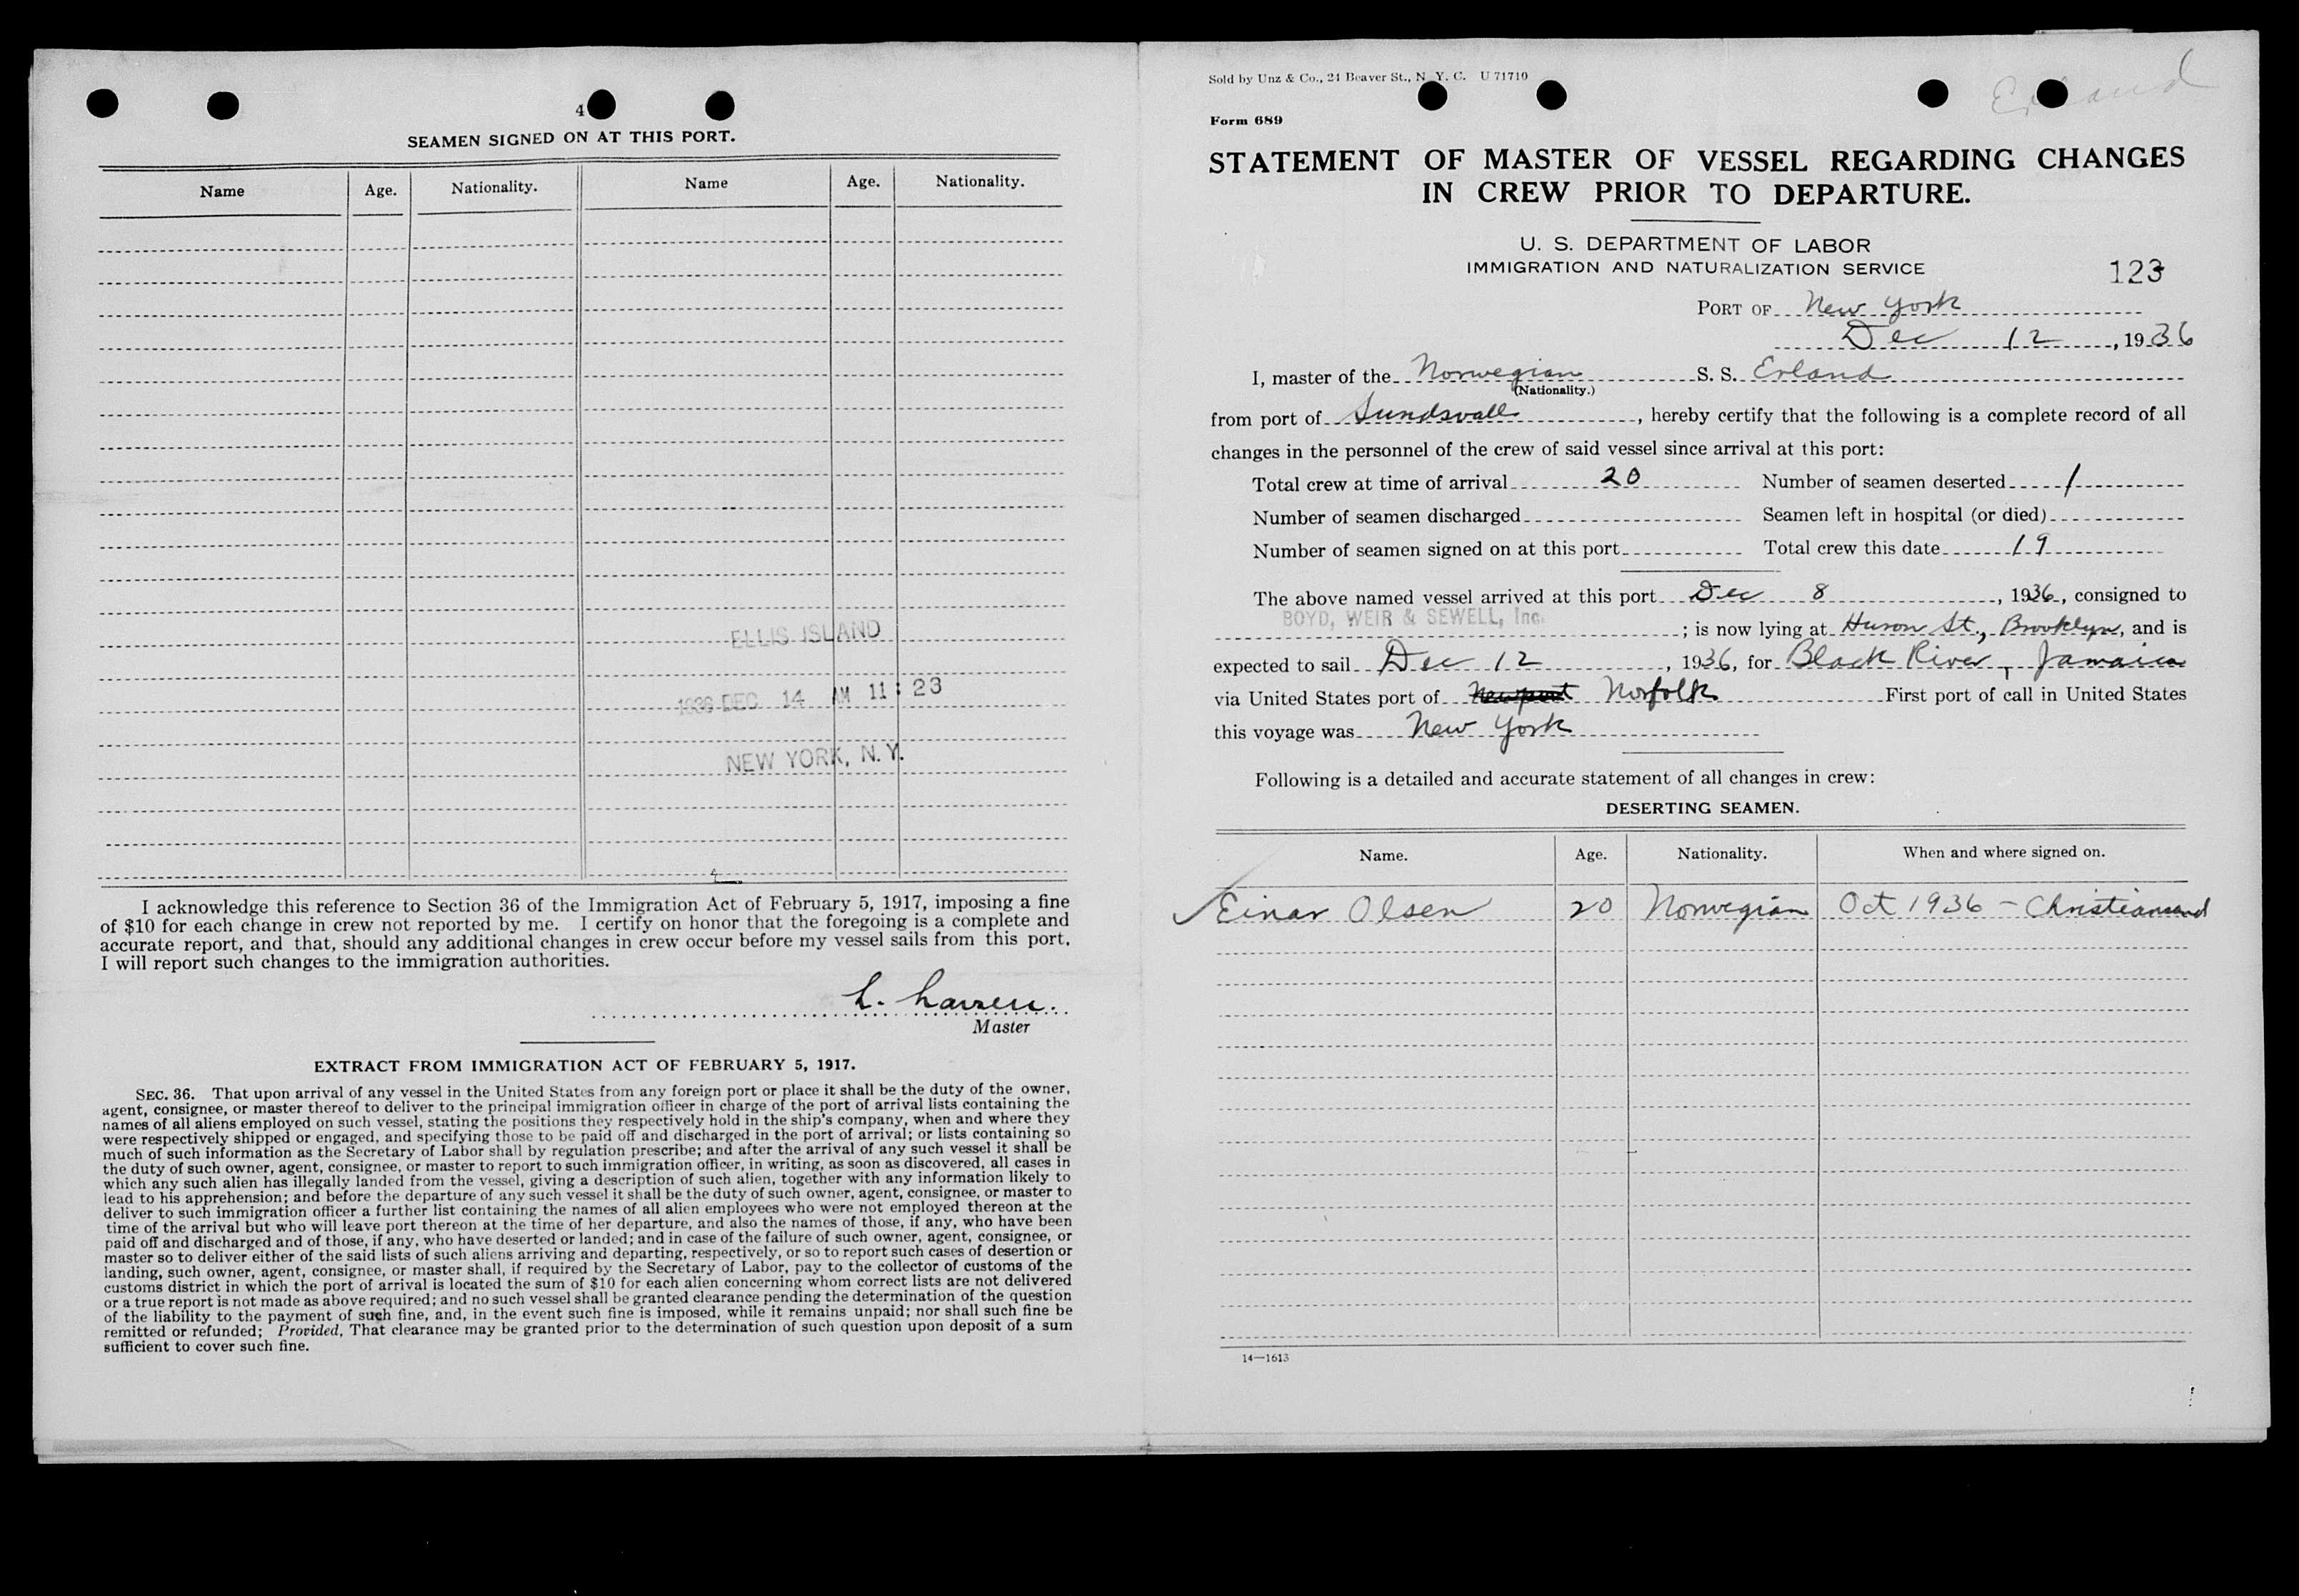 4
SEAMEN SIGNED ON AT THIS PORT.
Name Age. Nationality. Name Age. Nationality.
ELLIS ISLAND
1936 DEC 14 AM 11:23
NEW YORK, N.Y.
I acknowledge this reference to Section 36 of the Immigration Act of February 5, 1917, imposing a fine
of $10 for each change in crew not reported by me. I certify on honor that the foregoing is a complete and
accurate report, and that, should any additional changes in crew occur before my vessel sails from this port,
I will report such changes to the immigration authorities.
L. Larsen.
Master
EXTRACT FROM IMMIGRATION ACT OF FEBRUARY 5, 1917.
SEC. 36. That upon arrival of any vessel in the United States from any foreign port or place it shall be the duty of the owner,
agent, consignee, or master thereof to deliver to the principal immigration officer in charge of the port of arrival lists containing the
names of all aliens employed on such vessel, stating the positions they respectively hold in the ship's company, when and where they
were respectively shipped or engaged, and specifying those to be paid off and discharged in the port of arrival; or lists containing so
much of such information as the Secretary of Labor shall by regulation prescribe; and after the arrival of any such vessel it shall be
the duty of such owner, agent, consignee, or master to report to such immigration officer, in writing, as soon as discovered, all cases in
which any such alien has illegally landed from the vessel, giving a description of such alien, together with any information likely to
lead to his apprehension; and before the departure of any such vessel it shall be the duty of such owner, agent, consignee, or master to
deliver to such immigration officer a further list containing the names of all alien employees who were not employed thereon at the
time of the arrival but who will leave port thereon at the time of her departure, and also the names of those, if any, who have been
paid off and discharged and of those, if any, who have deserted or landed; and in case of the failure of such owner, agent, consignee, or
master so to deliver either of the said lists of such aliens arriving and departing, respectively, or so to report such cases of desertion or
landing, such owner, agent, consignee, or master shall, if required by the Secretary of Labor, pay to the collector of customs of the
customs district in which the port of arrival is located the sum of $10 for each alien concerning whom correct lists are not delivered
or a true report is not made as above required; and no such vessel shall be granted clearance pending the determination of the question
of the liability to the payment of such fine, and, in the event such fine is imposed, while it remains unpaid; nor shall such fine be
remitted or refunded; Provided, That clearance may be granted prior to the determination of such question upon deposit of a sum
sufficient to cover such fine.
Sold by Unz & Co., 24 Beaver St., N. Y. C. U 71710
Erland
Form 689
STATEMENT OF MASTER OF VESSEL REGARDING CHANGES
IN CREW PRIOR TO DEPARTURE.
U. S. DEPARTMENT OF LABOR
IMMIGRATION AND NATURALIZATION SERVICE
123
PORT OF New York
Dec 12, 1936
I, master of the Norwegian S. S. Erland
(Nationality.)
from port of Sundsvall, hereby certify that the following is a complete record of all
changes in the personnel of the crew of said vessel since arrival at this port:
Total crew at time of arrival 20 Number of seamen deserted 1
Number of seamen discharged Seamen left in hospital (or died)
Number of seamen signed on at this port Total crew this date 19
The above named vessel arrived at this port Dec 8, 1936, consigned to
BOYD, WEIR & SEWELL, Inc. ; is now lying at Huron St., Brooklyn, and is
expected to sail Dec 12, 1936, for Black River, Jamaica
via United States port of Newport Norfolk First port of call in United States
this voyage was New York
Following is a detailed and accurate statement of all changes in crew:
DESERTING SEAMEN.
Name. Age. Nationality. When and where signed on.
✓ Einar Olsen 20 Norwegian Oct 1936 - Christiansand
14—1613